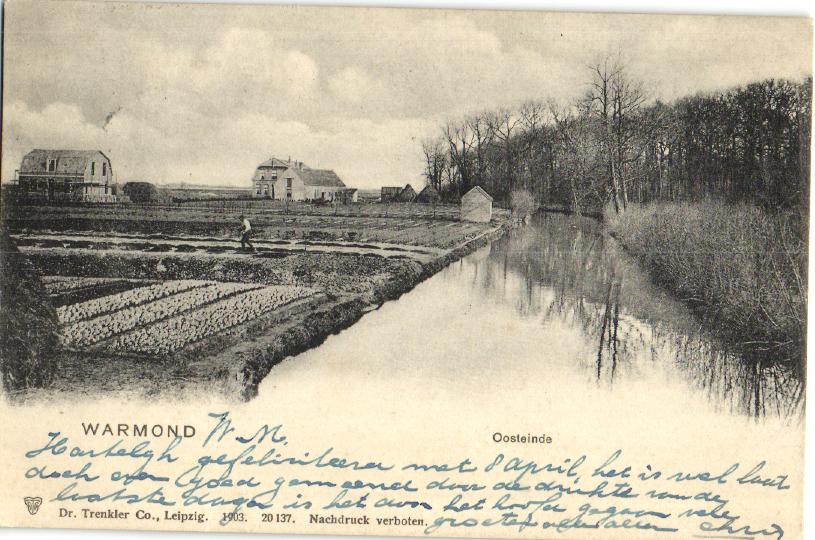 WARMOND W. M.
Oosteinde
Hartelijk gefeliciteerd met 8 April, het is wel laat
doch even goed gemeend door de drukte van de
laatste dagen is het aan het hoofd gegaan vele
groeten van allen
Dr. Trenkler Co., Leipzig. 1903. 20137. Nachdruck verboten.